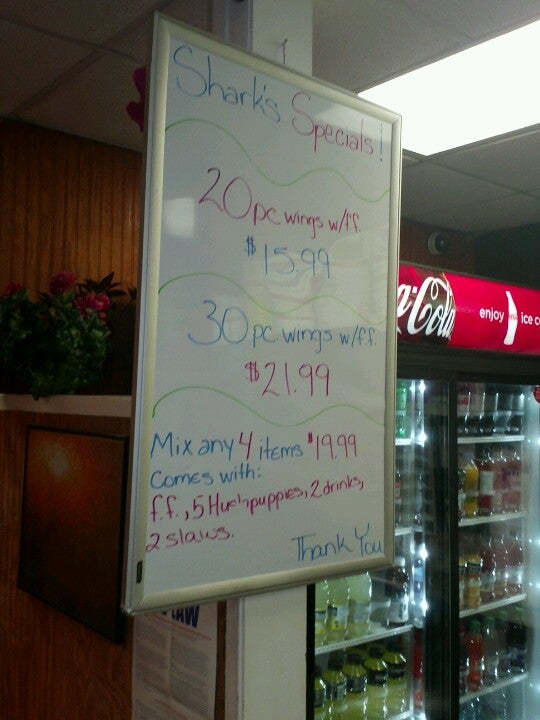 Shark's Specials!
20pc wings w/f.f.
$15.99
30pc wings w/f.f.
$21.99
Mix any 4 items $19.99
Comes with:
f.f., 5 Hushpuppies, 2 drinks,
2 slaws.
Thank You
Coca-Cola
enjoy ice co
LAW